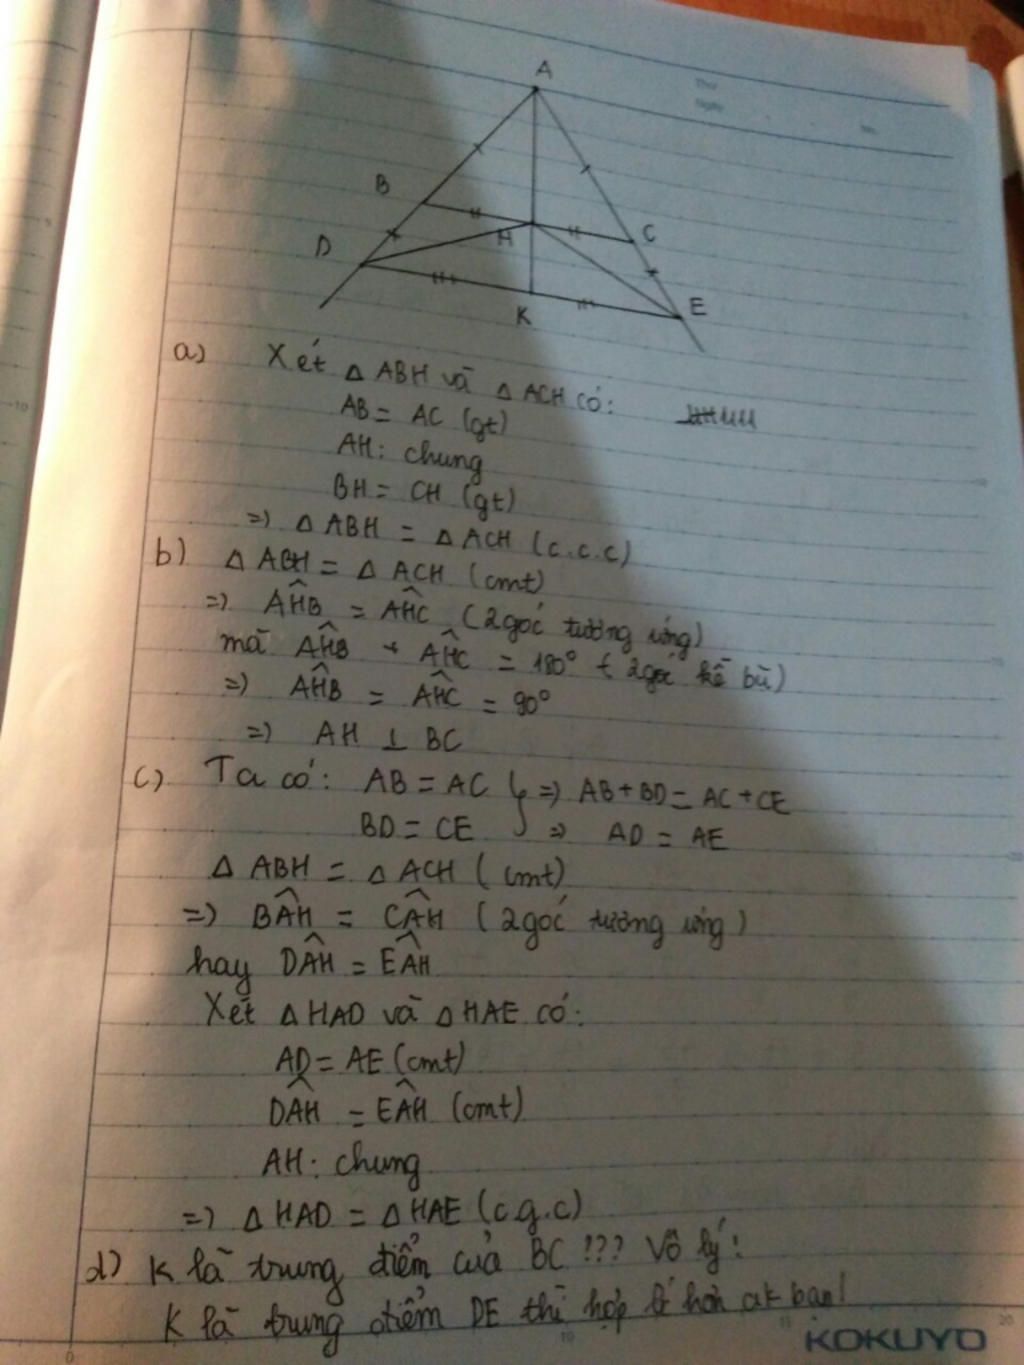 A
B
C
D
H
K
E
Thứ
Ngày
No.
a) Xét △ ABH và △ ACH có:
AB = AC (gt)
AH: chung
BH = CH (gt)
=> △ ABH = △ ACH (c.c.c)
b) △ ABH = △ ACH (cmt)
=> AĤB = AĤC (2 góc tương ứng)
mà AĤB + AĤC = 180° (2 góc kề bù)
=> AĤB = AĤC = 90°
=> AH ⊥ BC
c) Ta có: AB = AC } => AB + BD = AC + CE
BD = CE => AD = AE
△ ABH = △ ACH (cmt)
=> BÂH = CÂH (2 góc tương ứng)
hay DÂH = EÂH
Xét △ HAD và △ HAE có:
AD = AE (cmt)
DÂH = EÂH (cmt)
AH: chung
=> △ HAD = △ HAE (c.g.c)
d) K là trung điểm của BC !??? Vô lý!
K là trung điểm DE thì hợp lí hơn ak bạn!
KOKUYO